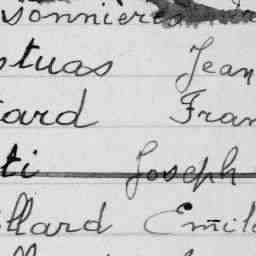 sonnières
stuas Jean
ard Fran
ti Joseph
llard Emil